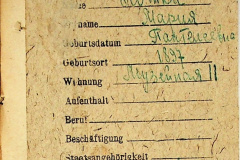 name Мария
Geburtsdatum Пантелеевна
Geburtsort 1897
Wohnung Музейная 11
Aufenthalt
Beruf
Beschäftigung
Staatsangehörigkeit